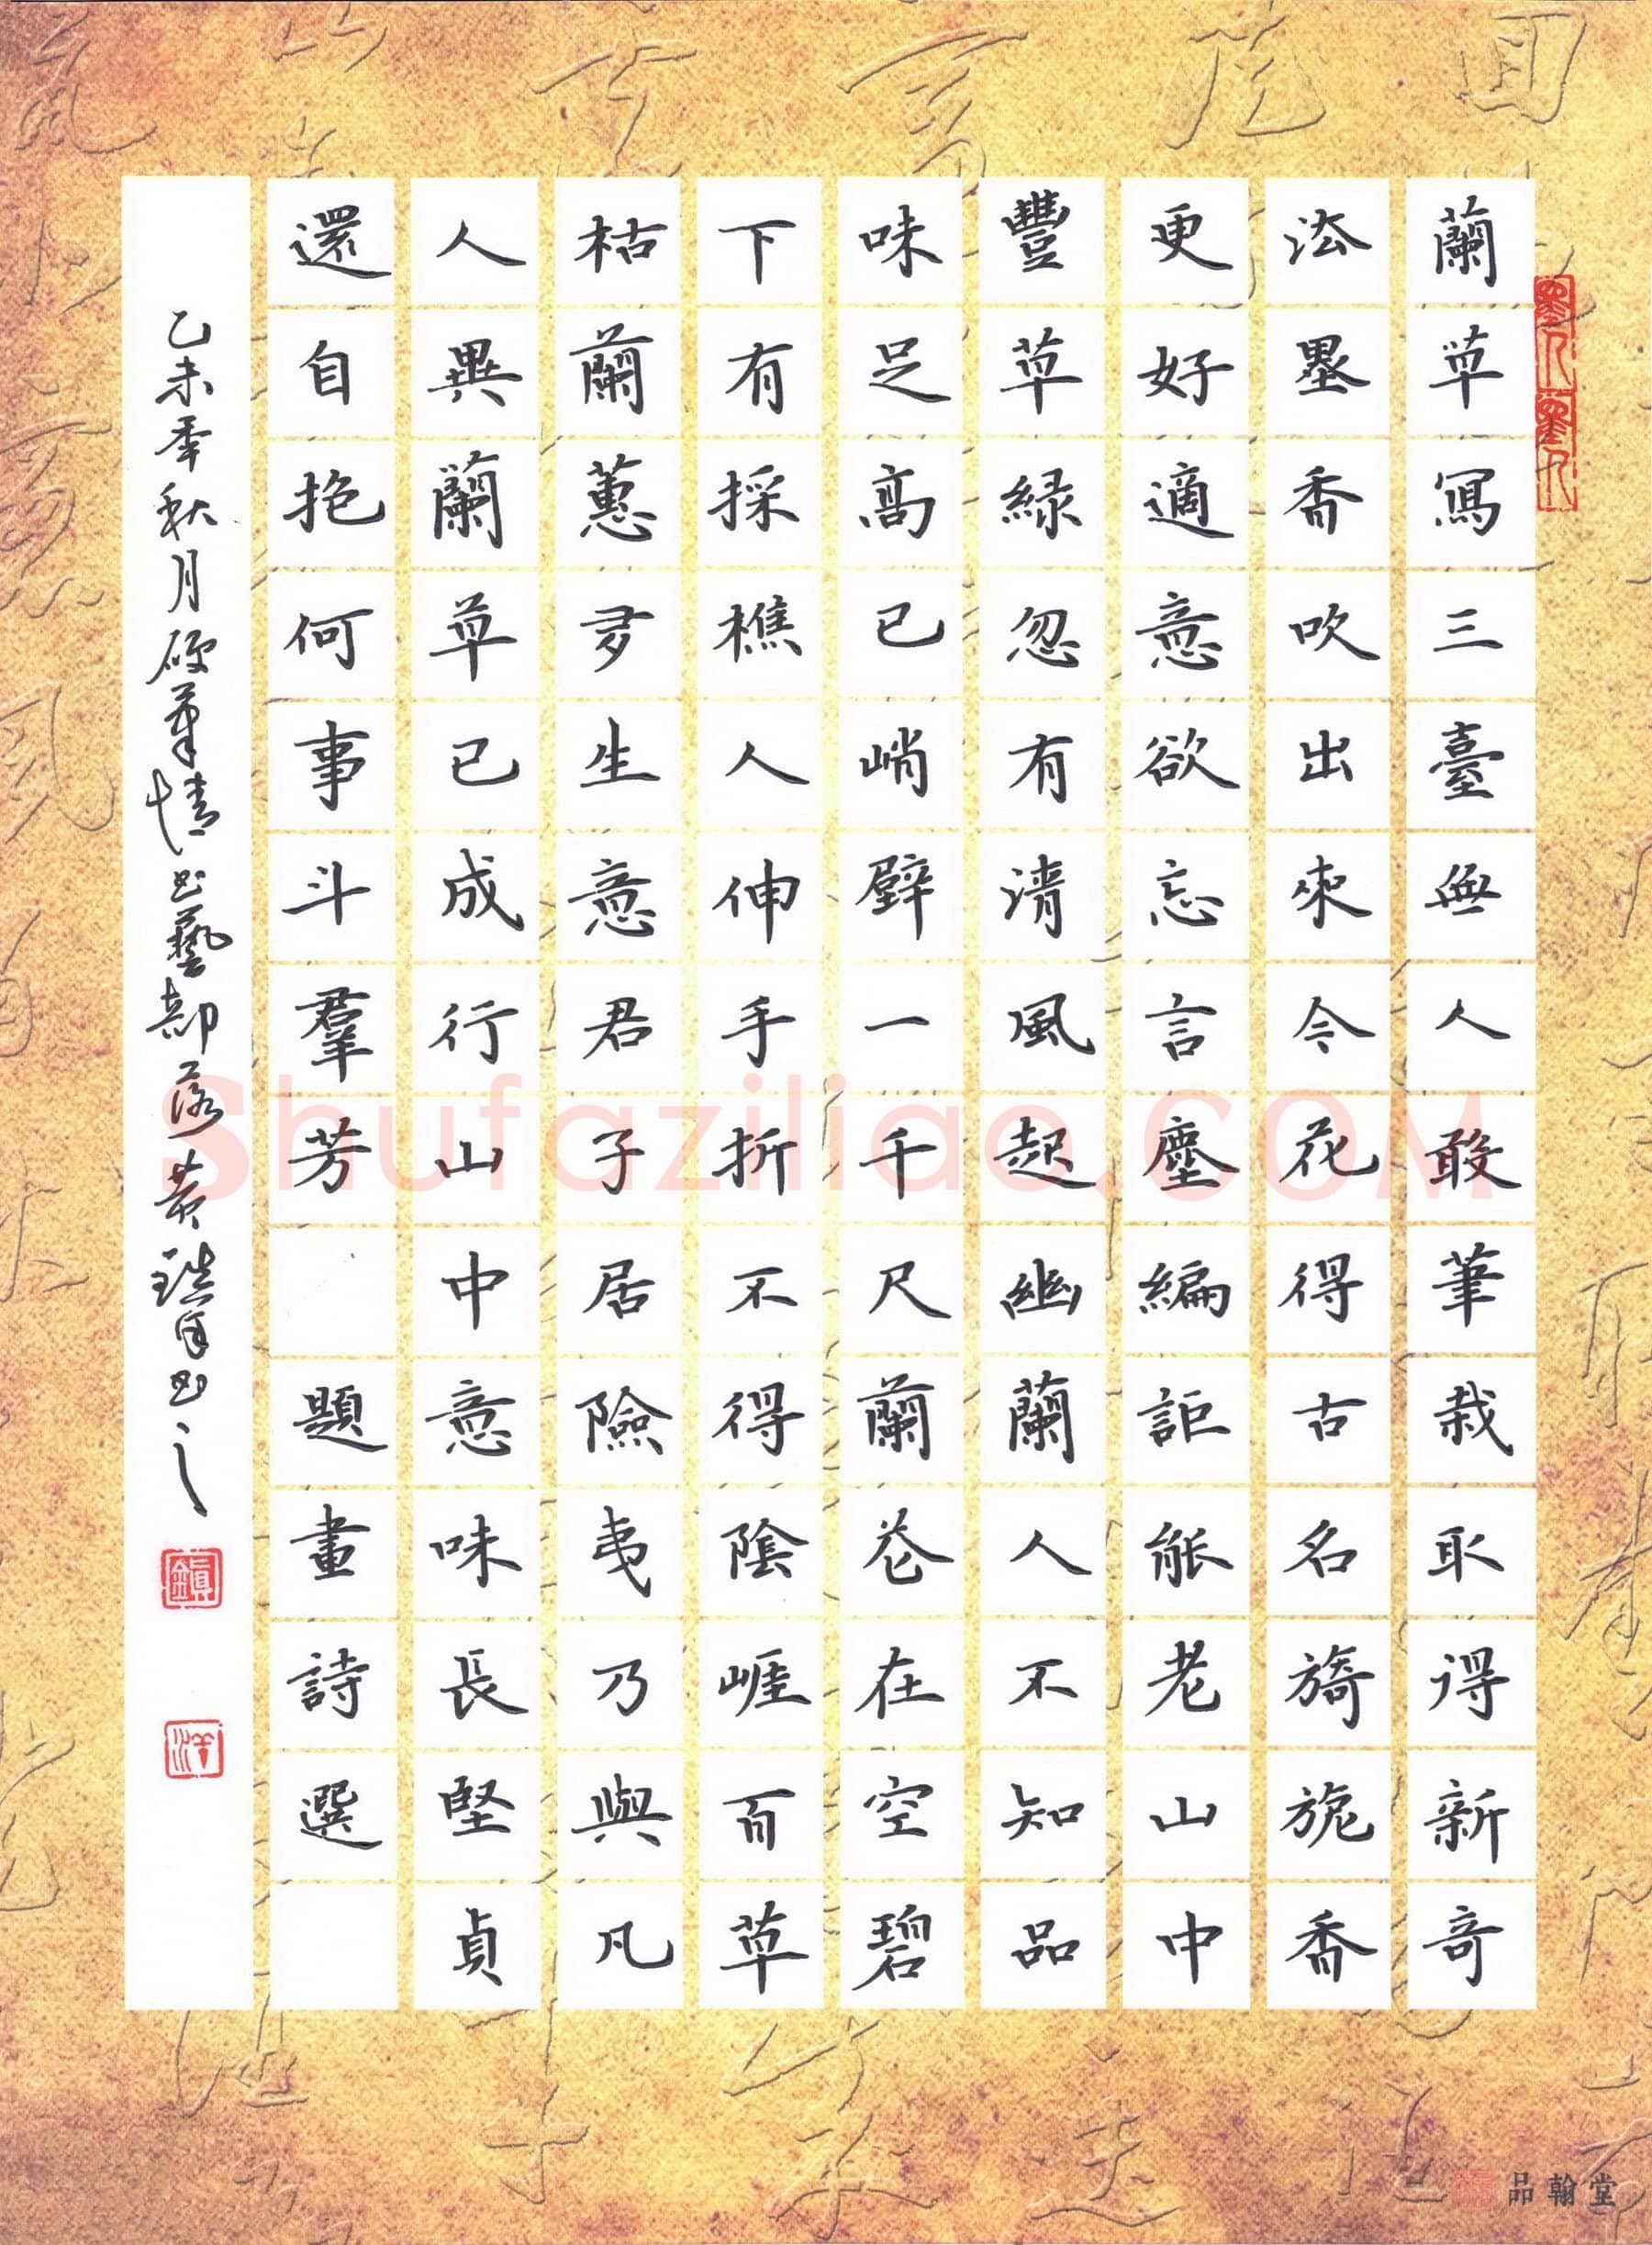 蘭草寫三臺無人敢筆栽取得新奇
法墨香吹出來令花得古名旖旎香
更好適意欲忘言塵編詎能老山中
豐草緑忽有清風起幽蘭人不知品
味足高已峭壁一千尺蘭花在空碧
下有採樵人伸手折不得陰崖百草
枯蘭蕙多生意君子居險夷乃與凡
人異蘭草已成行山中意味長堅貞
還自抱何事斗羣芳 題畫詩選
乙未季秋月硬筆情書藝部落黃鎮洋書之
鎮
洋
Shufaziliao.com
品翰堂